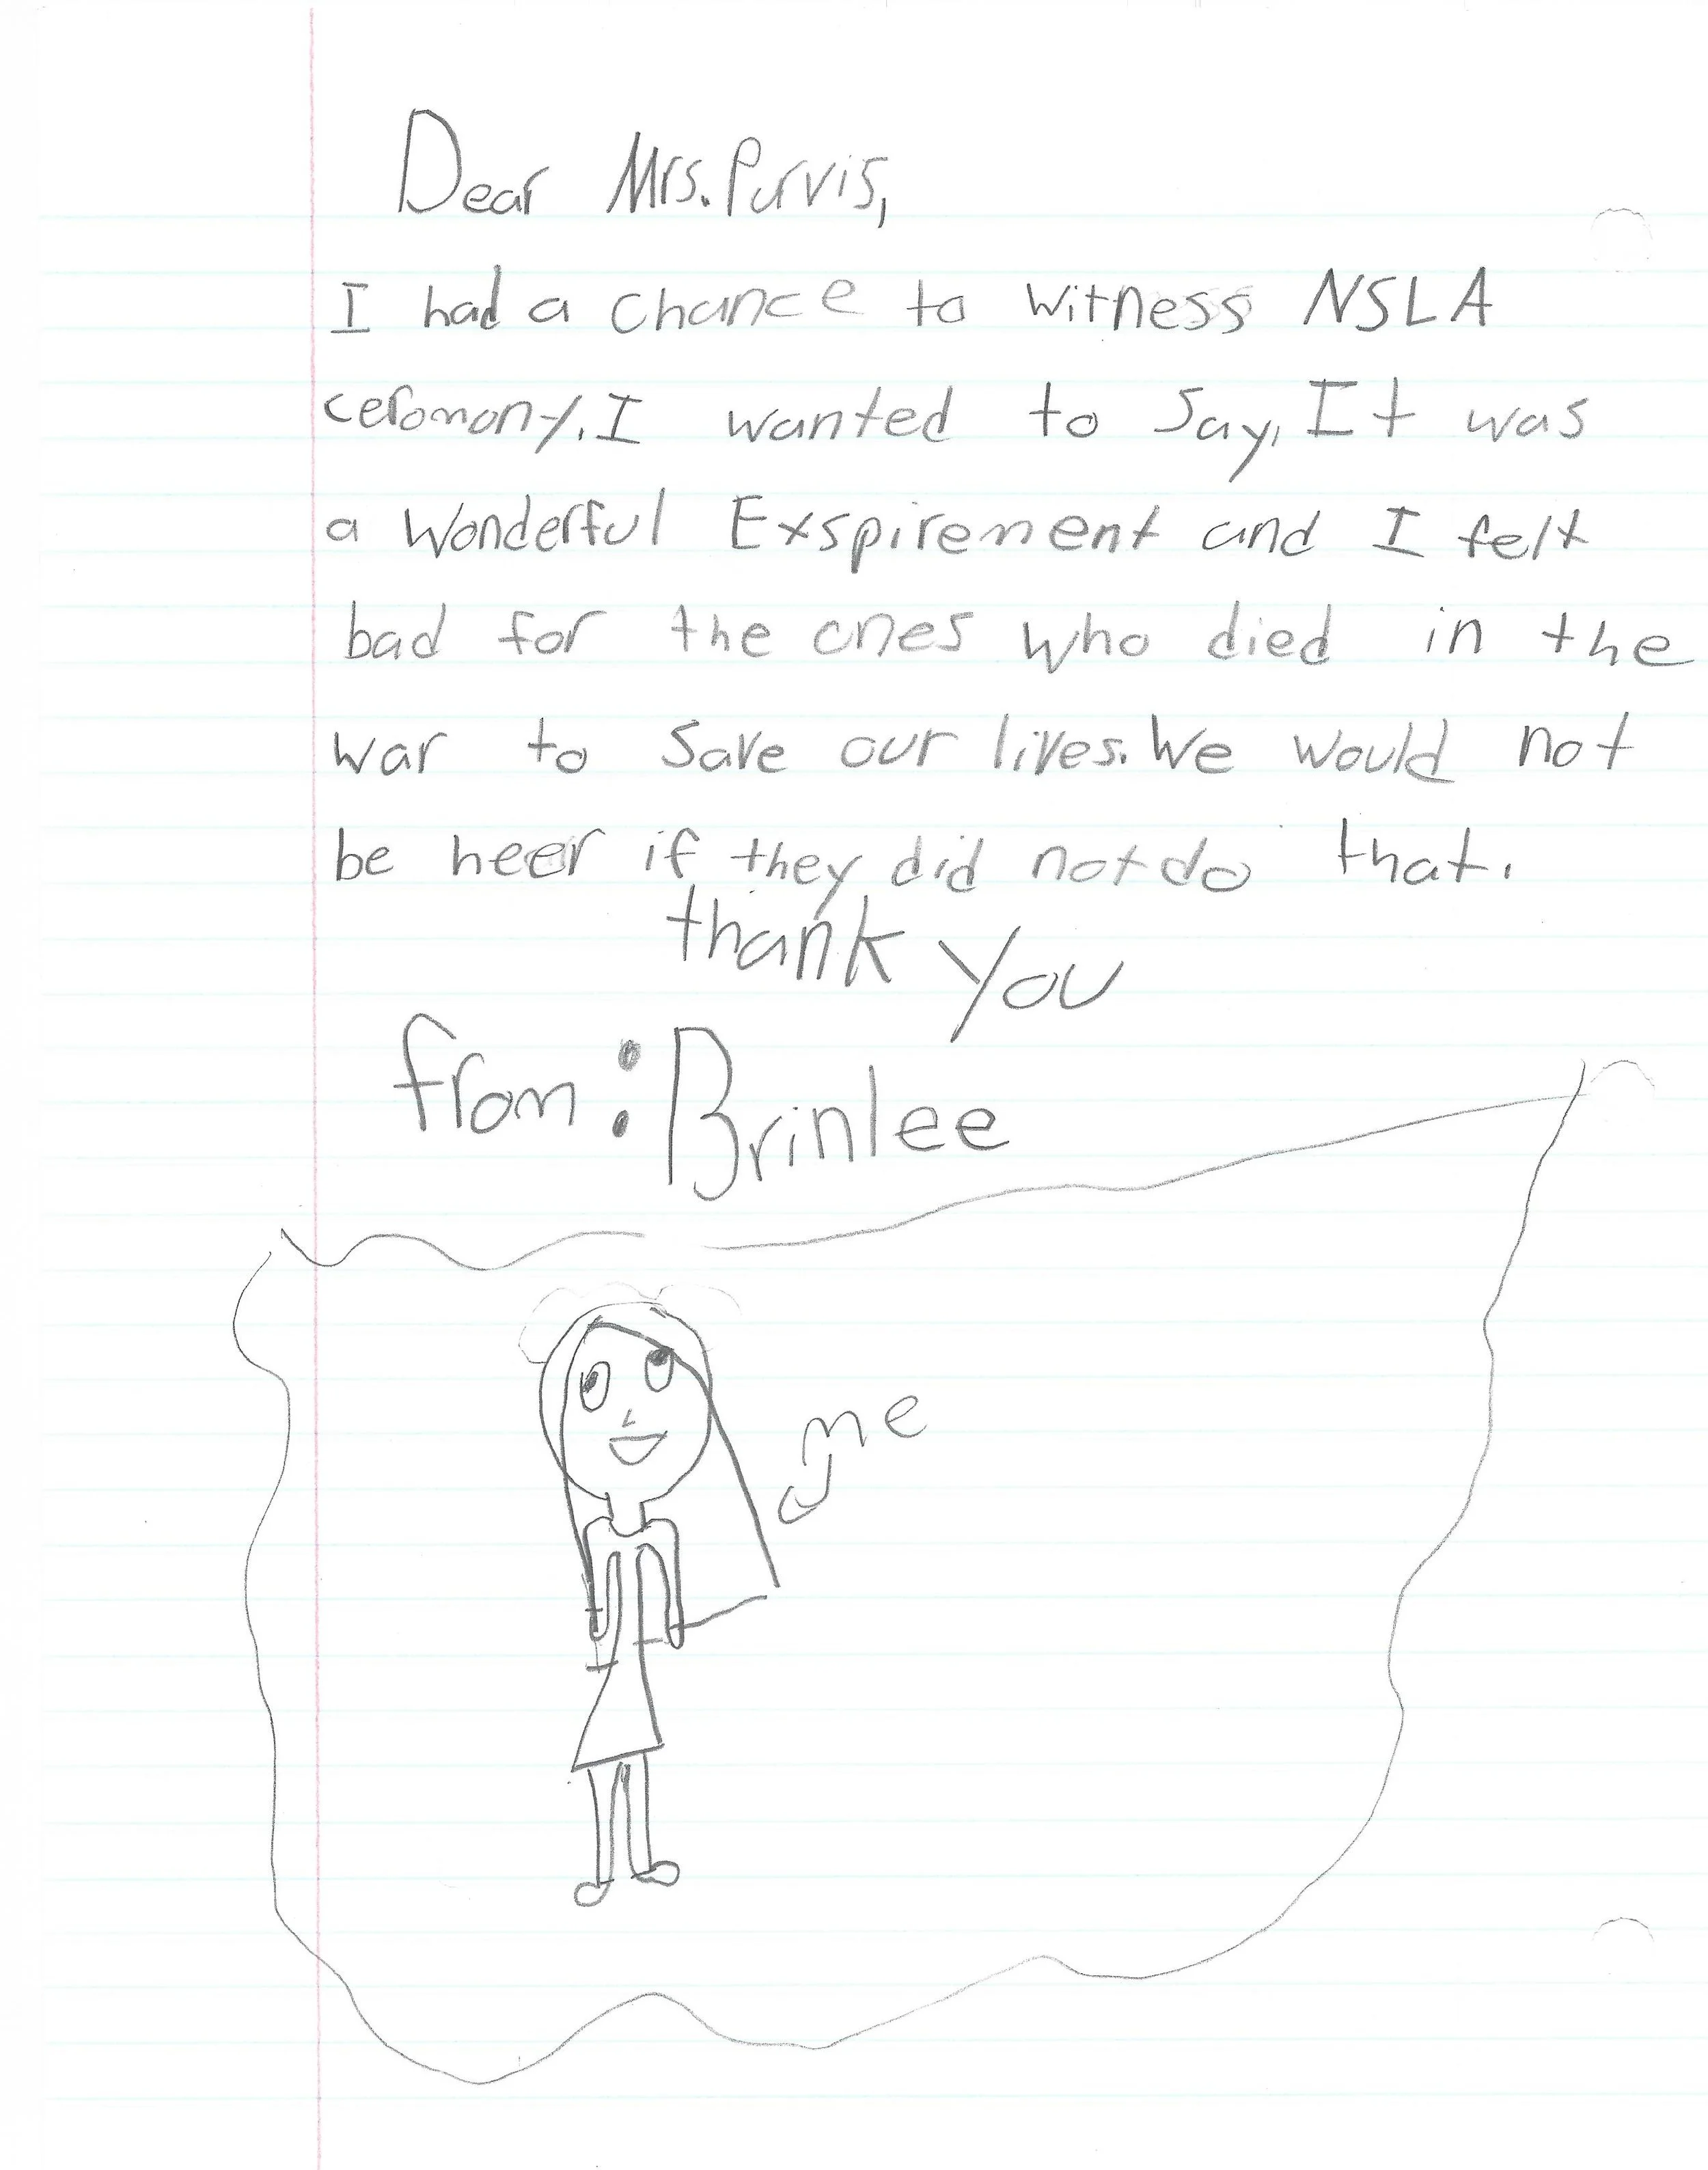 Dear Mrs. Purvis,
I had a chance to witness NSLA
ceromony. I wanted to say, It was
a wonderful Exspirement and I felt
bad for the ones who died in the
war to save our lives. We would not
be heer if they did not do that.
thank you
from: Brinlee
me